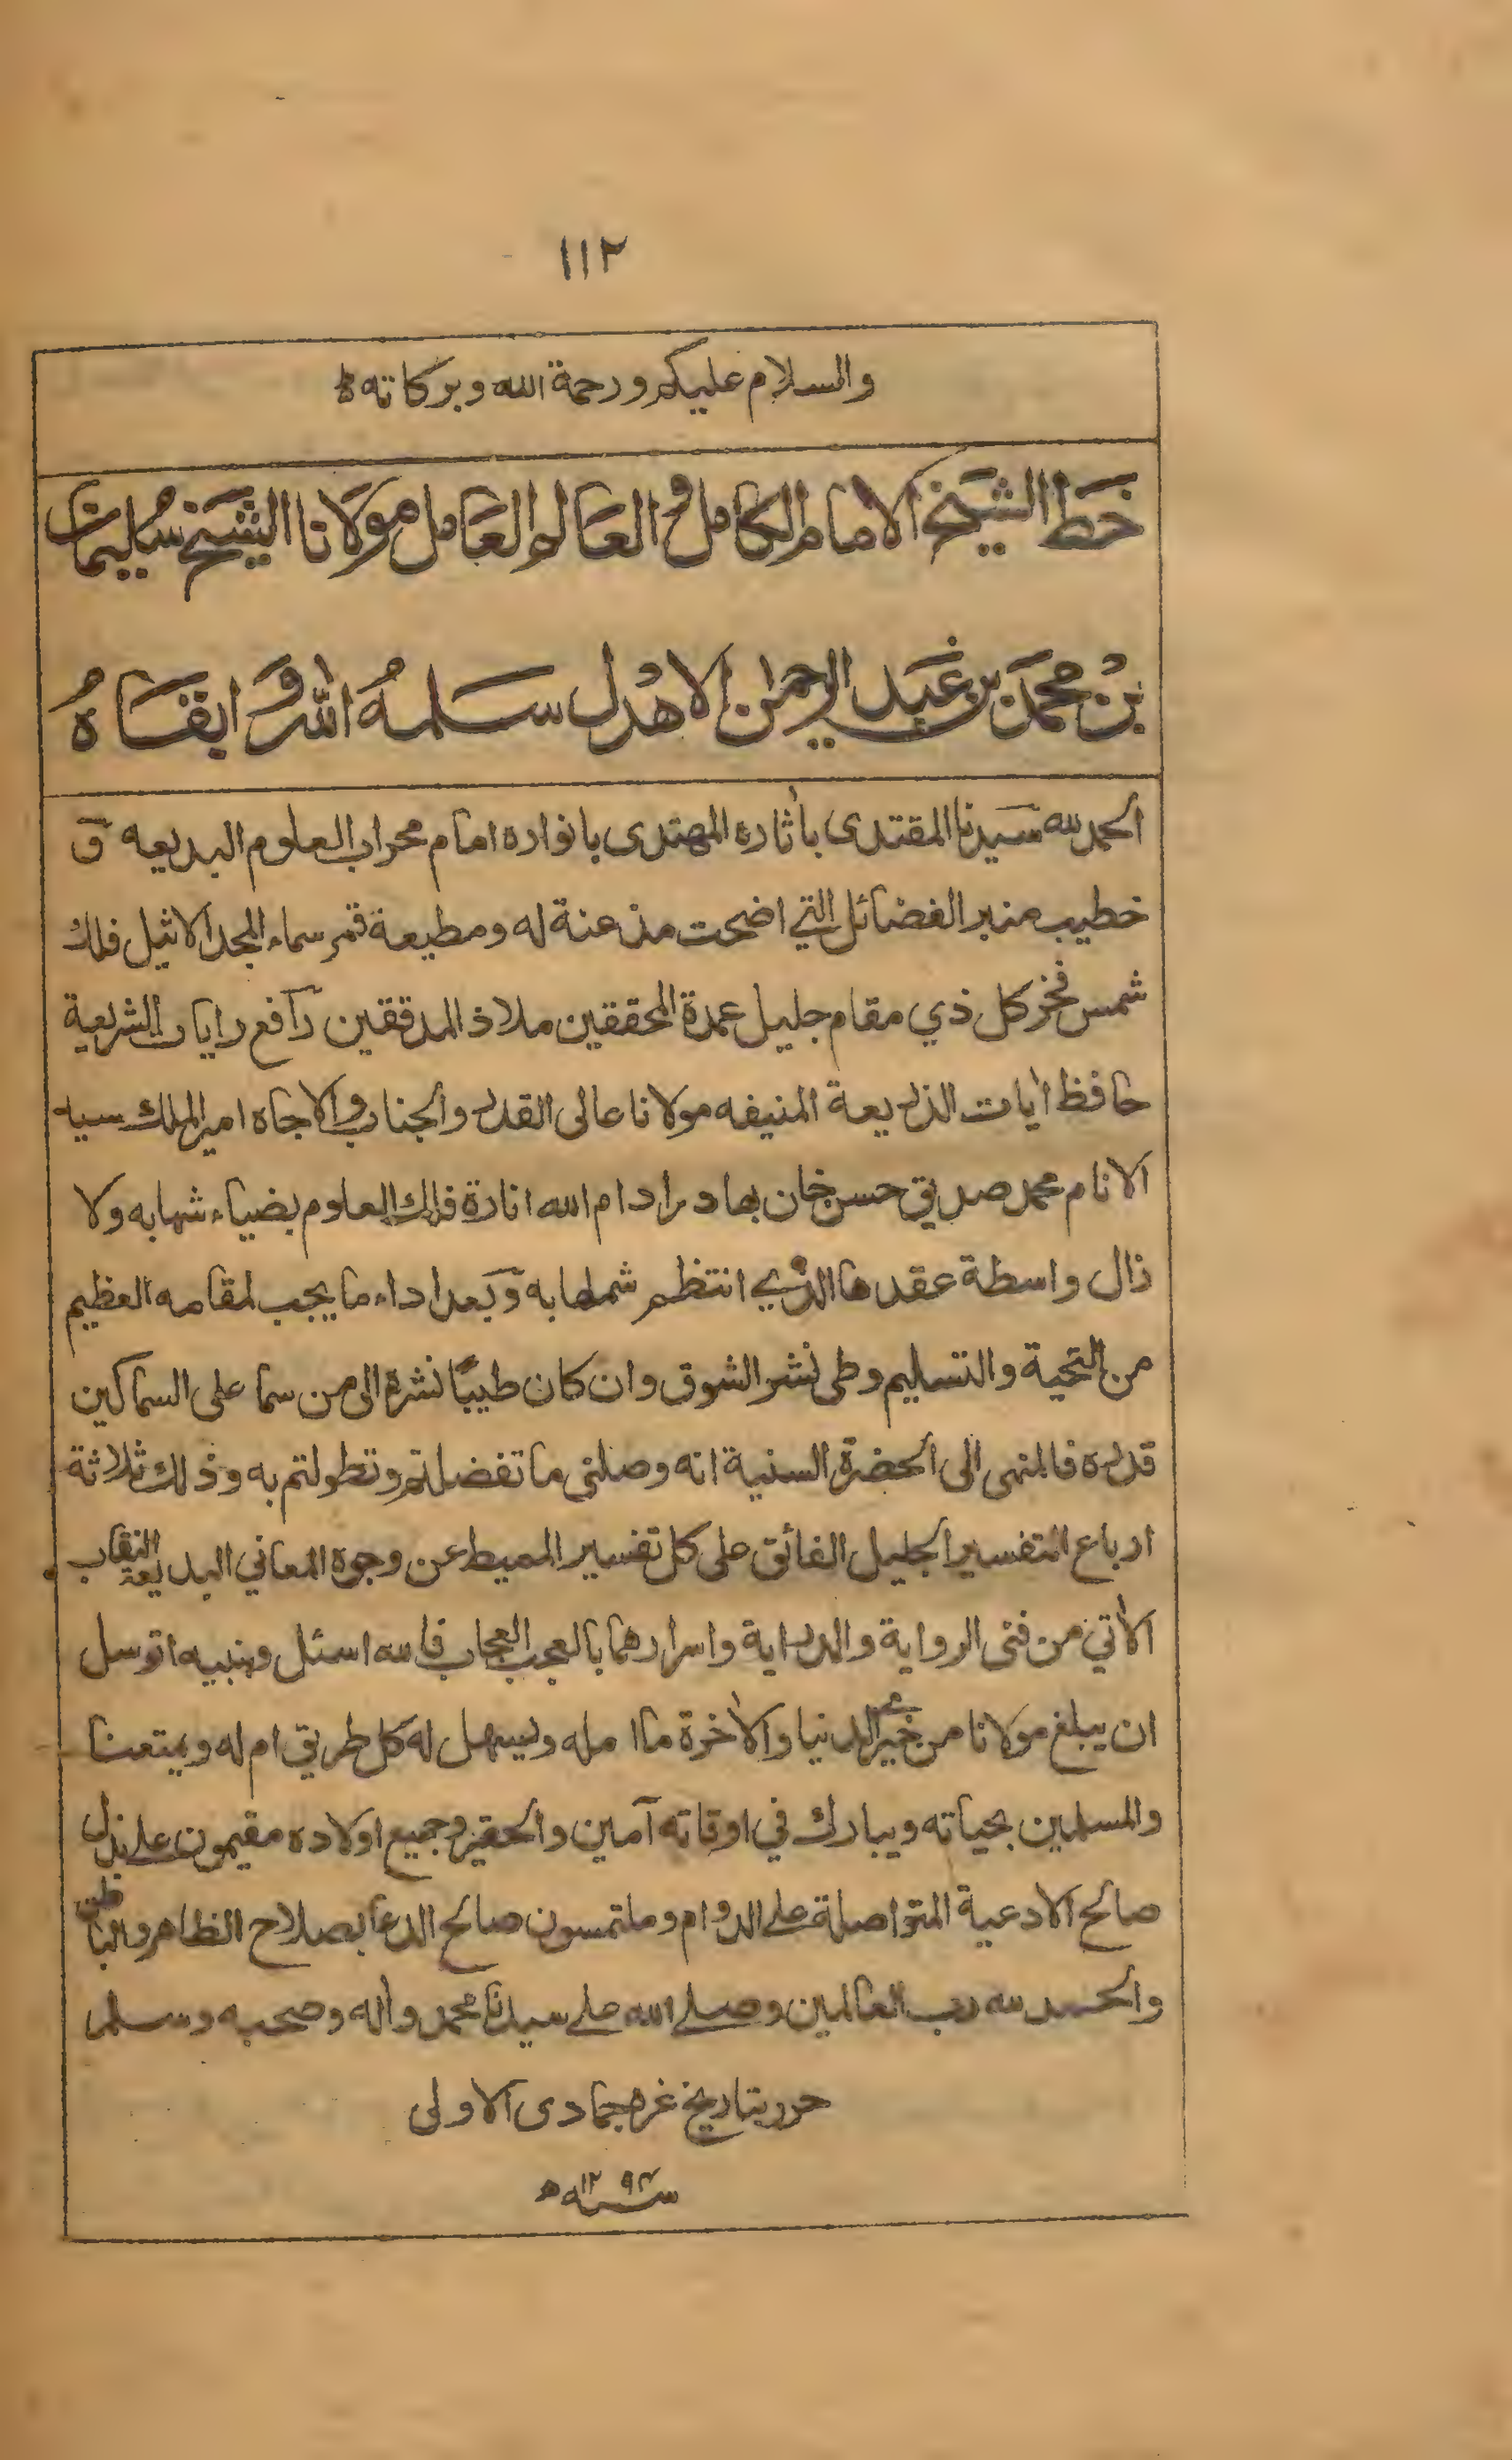 ١١٢
والسلام عليكم ورحمة الله وبركاته
خط الشيخ الامام الكامل و العالم العامل مولانا الشيخ سليمان
بن محمد بن عبد الرحمن الاهدل سلمه الله و ابقاه
الحمد لله سيدنا المقتدى بأثاره المهتدى بانواره امام محراب العلوم البديعه و
خطيب منبر الفضائل التي اضحت مذعنة له ومطيعة قمر سماء المجد الاثيل فلك
شمس فخر كل ذي مقام جليل عمدة المحققين ملاذ المدققين رافع رايات الشريعة
حافظ أيات الذريعة المنيفه مولانا عالى القدر والجناب والاجاه امير الملك سيد
الانام محمد صديق حسن خان بهادر ادام الله انارة فلك العلوم بضياء شهابه ولا
زال واسطة عقدها الذي انتظم شملها به وبعد اداء ما يجب لمقامه العظيم
من التحية والتسليم وطى نشر الشوق وان كان طيبًا نشره الى من سما على السماكين
قدره فالمنهى الى الحضرة السنية انه وصلنى ما تفضلتم وتطولتم به وذلك ثلاثة
ارباع التفسير الجليل الفائق على كل تفسير المميط عن وجوه المعاني البديعة النقاب
الأتي من فنى الرواية والدراية واسرارهما بالعجب العجاب فالله اسئل وبنبيه اتوسل
ان يبلغ مولانا من خيرى الدنيا والأخرة ما امله ويسهل له كل طريق ام له ويمتعنا
والمسلمين بحياته ويبارك في اوقاته آمين والحقير وجميع اولاده مقيمون على بذل
صالح الادعية المتواصلة على الدوام وملتمسون صالح الدعا بصلاح الظاهر والباطن
والحمد لله رب العالمين وصلى الله على سيدنا محمد وأله وصحبه وسلم
حرر بتاريخ غره جمادى الاولى
سنه ١٢٩٤ ه